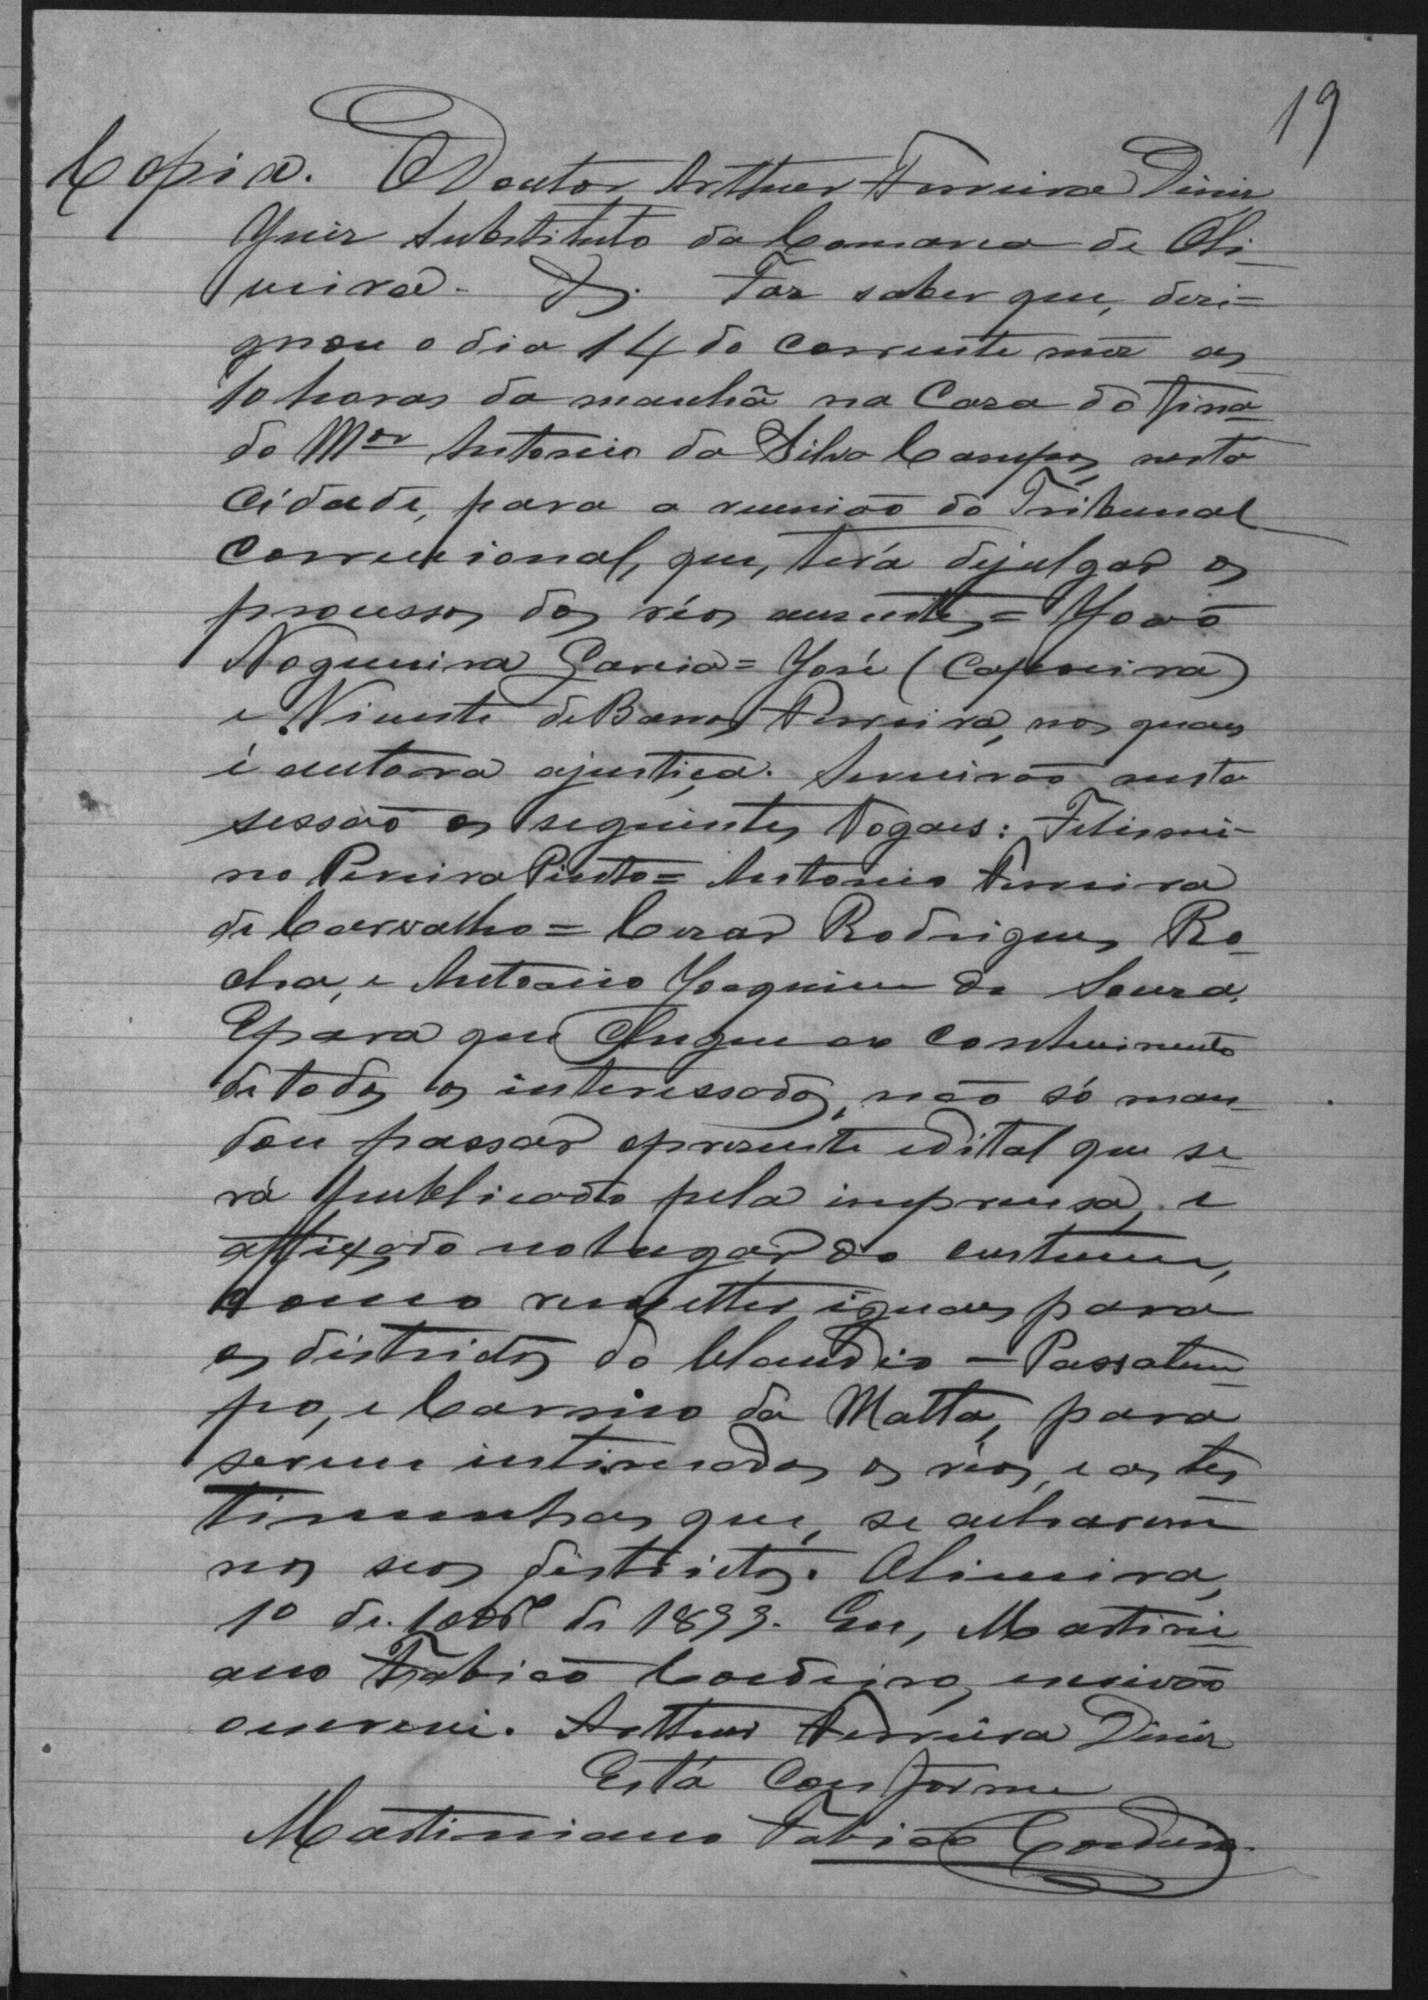 19
Copia. O Doutor Arthur Ferreira Diniz
Juiz Substituto da Comarca de Oli-
veira. &. Faz saber que, dezi=
gnou o dia 14 do corrente mez as
10 horas da manhã na Caza do fina-
do Mor Antonio da Silva Campos, nesta
Cidade, para a reunião do Tribunal
Correcional, que, terá dejulgar os
processos dos réos auzentes = João
Nogueira Garcia = José (Capoeira)
e Vicente de Barros Ferreira, nos quaes
é autora ajustiça. Servirão nesta
sessão os seguintes Vogaes: Felismi-
no Pereira Pinto = Antonio Ferreira
de Carvalho = Cezar Rodrigues Ro-
cha, e Antonio Joaquim de Souza.
Epara que chegue ao conhecimento
detodos os interessados, não só man-
dou passar oprezente edital que se-
rá publicado pela imprensa, e
affixado nolugar do custume,
como remetter iguaes para
os districtos do Claudio - Passatem-
po, e Carmo da Matta, para
serem intimados os réos, e as tes
timunhas que, se acharem
nos seos districtos. Oliveira,
1º de de 1899. Eu, Martini-
ano Fabião Cordeiro, escrivão
oescrevi. Arthur Ferreira Diniz
Está Conforme
Martiniano Fabião Cordeiro